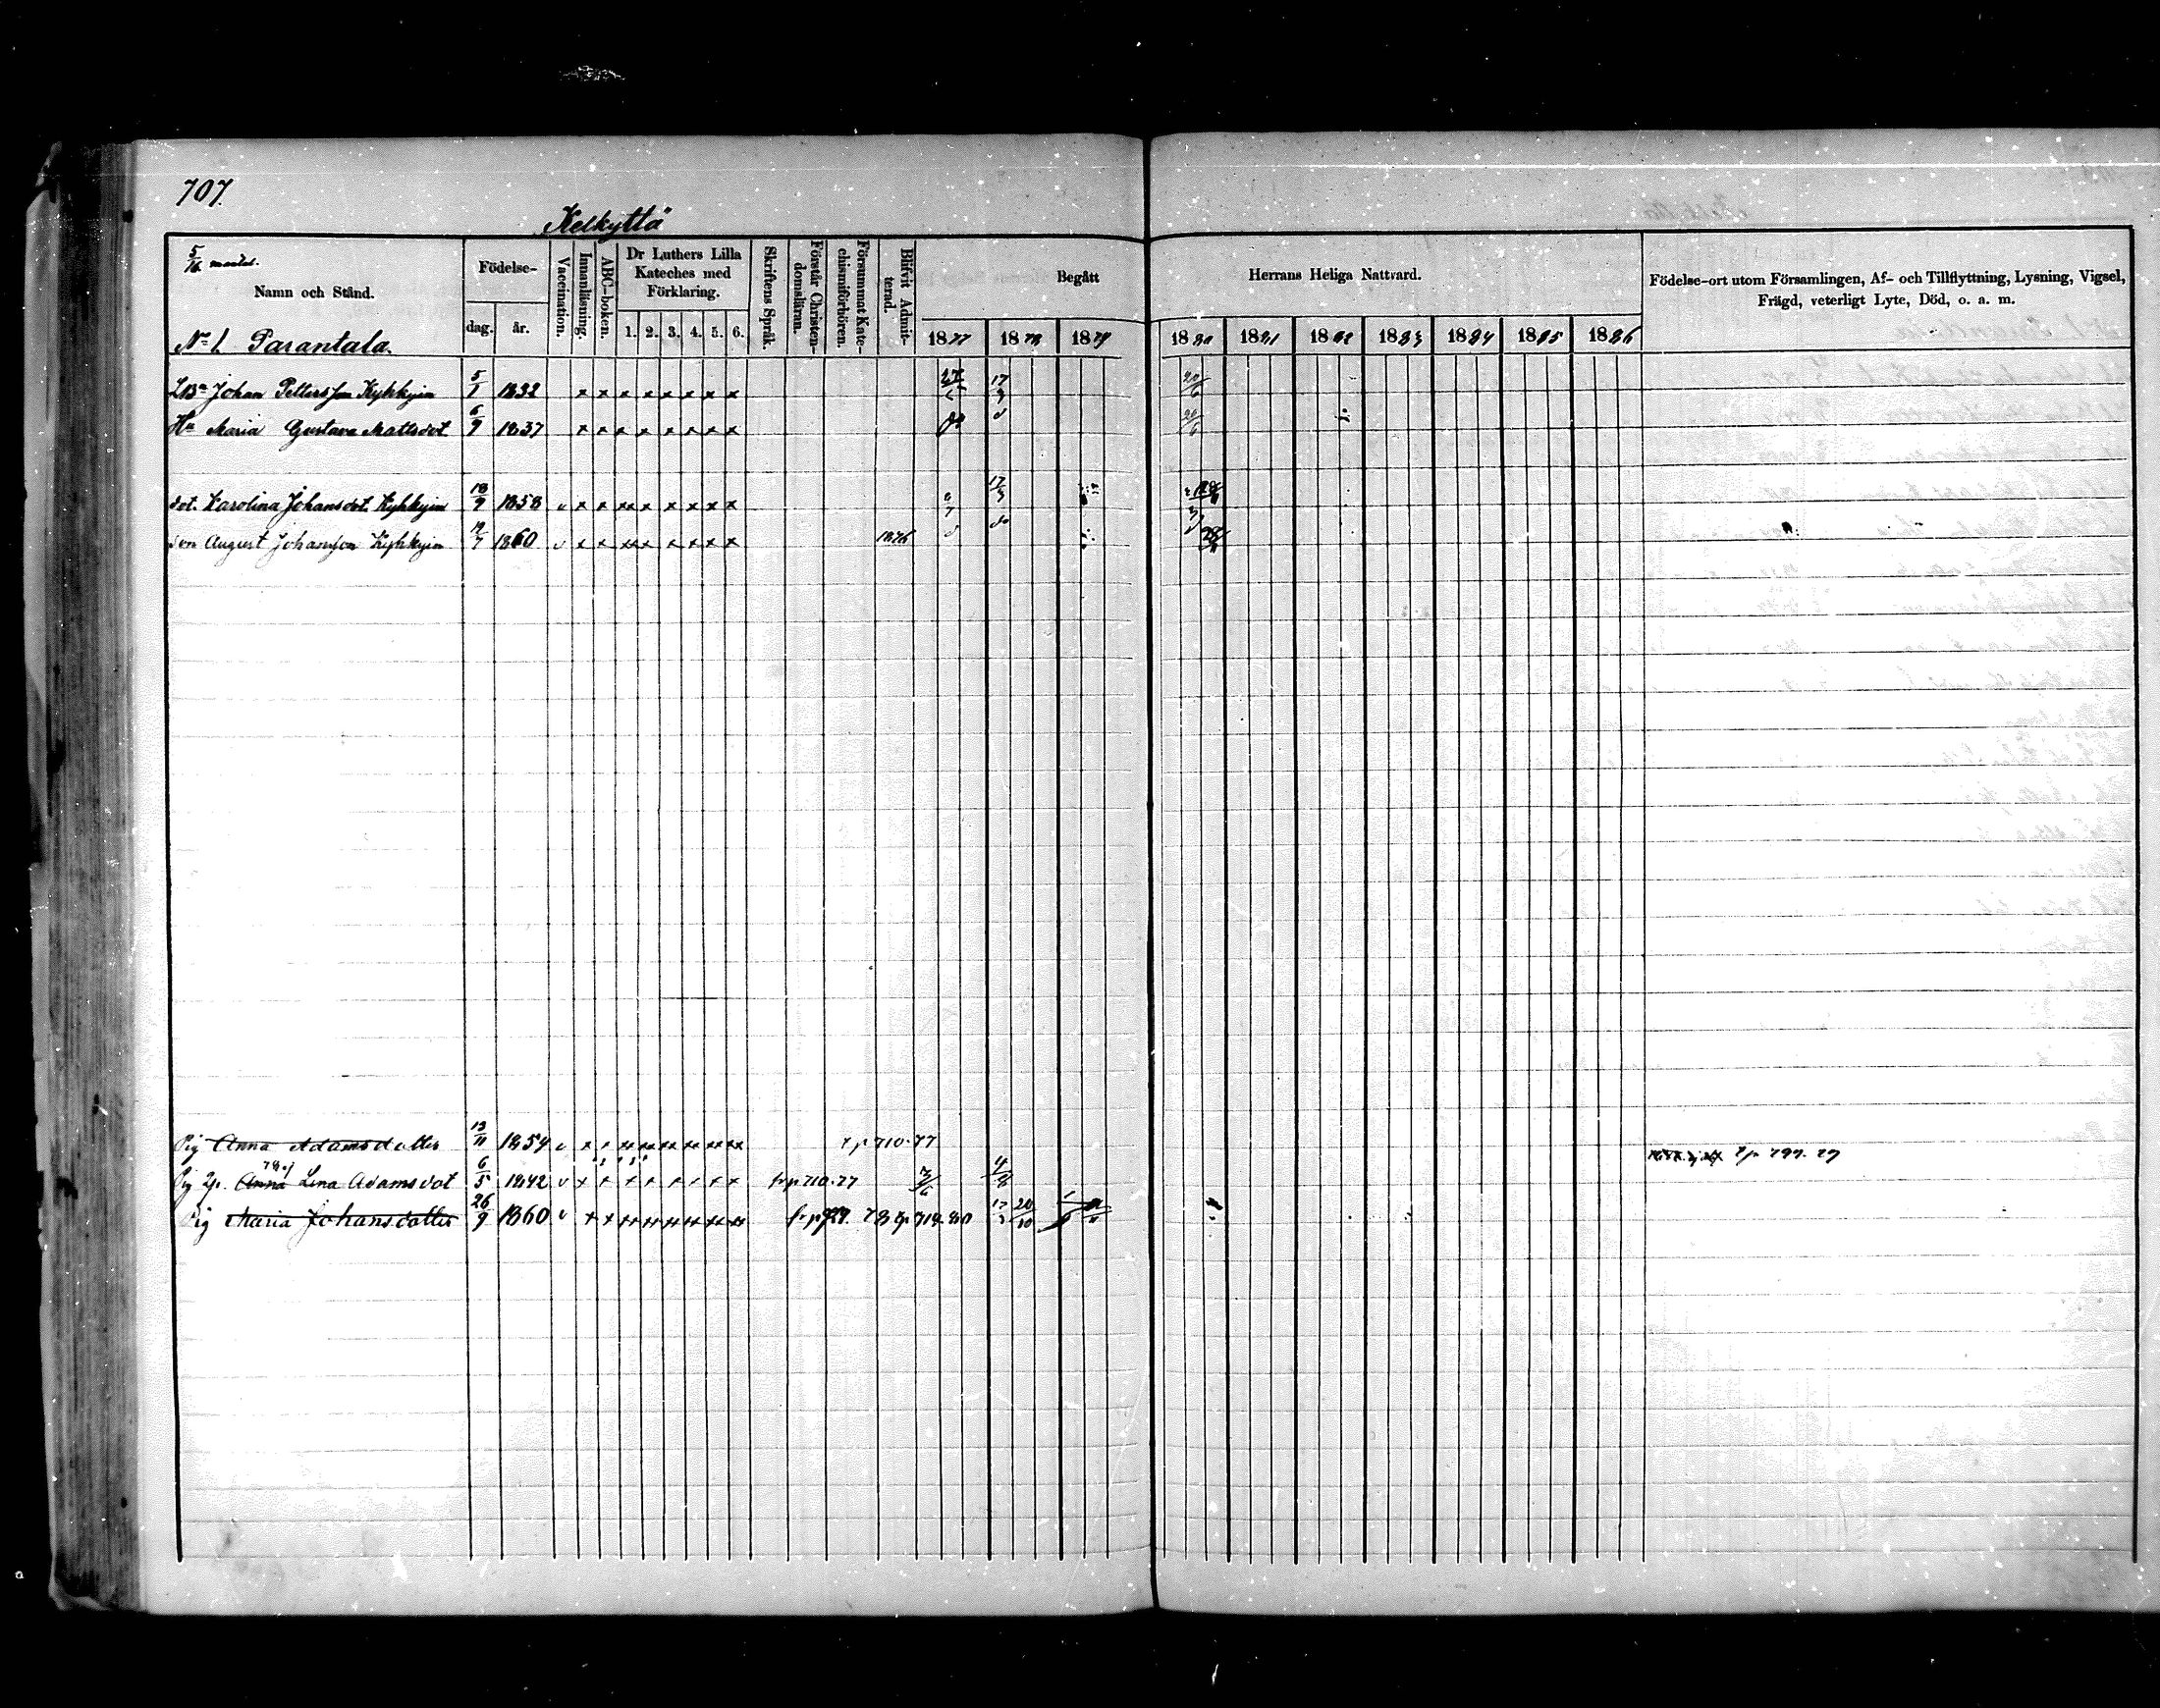 707.
Kelkyttä
5/16 mantal.
Namn och Stånd.
No 1. Parantala.
Födelse-
dag. år.
Vaccination.
Innanläsning.
ABC-boken.
Dr Luthers Lilla
Kateches med
Förklaring.
1. 2. 3. 4. 5. 6.
Skriftens Språk.
Förstår Christen-
domsläran.
Försummat Kate-
chismiförhören.
Blifvit Admit-
terad.
Begått
1877 1878 1879
Herrans Heliga Nattvard.
1880 1881 1882 1883 1884 1885 1886
Födelse-ort utom Församlingen, Af- och Tillflyttning, Lysning, Vigsel,
Frägd, veterligt Lyte, Död, o. a. m.
Johan Pettersson Kyhkyin 5/1 1832 x x x x x x x x 17/3 20/6
Hu Maria Gustava Mattsdot 6/9 1837 x x x x x x x x do 20/6
dot. Karolina Johansdot. Kyhkyin 18/9 1858 v x x xx x x x x x 17/3
son August Johansson Kyhkyin 12/7 1860 v x x xx x x x x x 1876 do
Pig Anna Adamsdotter 13/11 1854 v x x xx xx xx xx xx xx 710.77
Pig Anna Lena Adamsdot 6/5 1842 v x x x x x x x x fr p 710.77
Pig Maria Johansdotter 26/9 1860 v x x xx xx xx xx xx xx 17/3 20/10